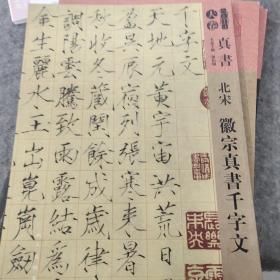 真書
北宋 徽宗真書千字文
千字文
天地元黄宇宙洪荒日
盈昃辰宿列張寒来暑
秋收冬藏閏餘成歲律
調陽雲騰致雨露結爲
金生麗水玉出崑崗劍